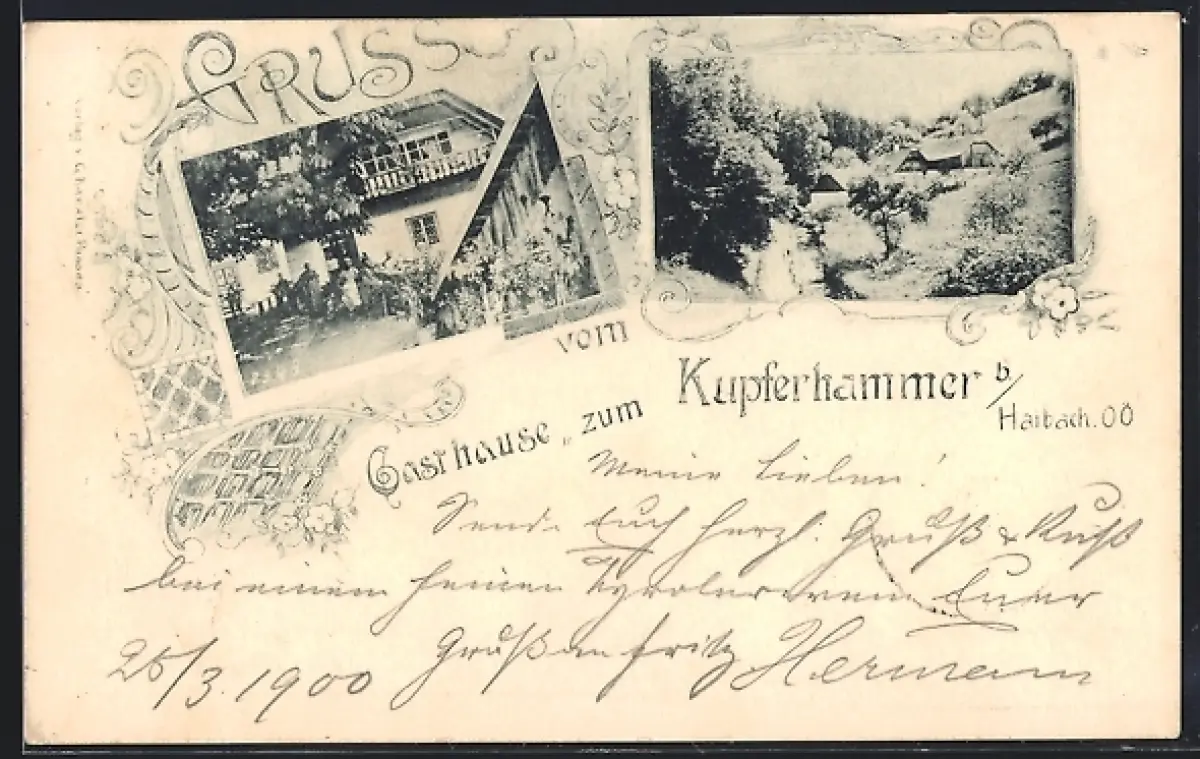 GRUSS
vom
Gasthause „zum Kupferhammer b/
Haibach. OÖ
Meine Lieben!
Sende Euch herzl. Gruß & Kuß
bei einem feinen Euer
Gruß an Fritz Hermann
25/3. 1900
Verlag